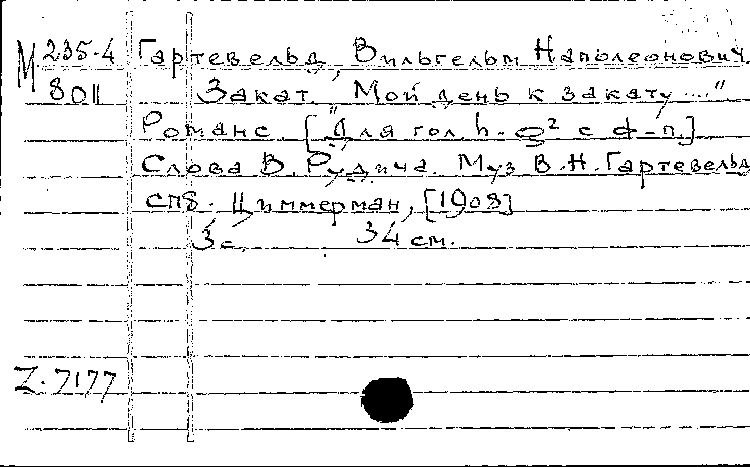 М 235-4 Гартевельд, Вильгельм Наполеонович.
8011 Закат. "Мой день к закату...."
Романс. [Для гол. h-g² с ф-п.]
Слова В. Рудича. Муз В.Н. Гартевельд
СПб. Циммерман, [1908]
3 с. 34 см.
Z.7177